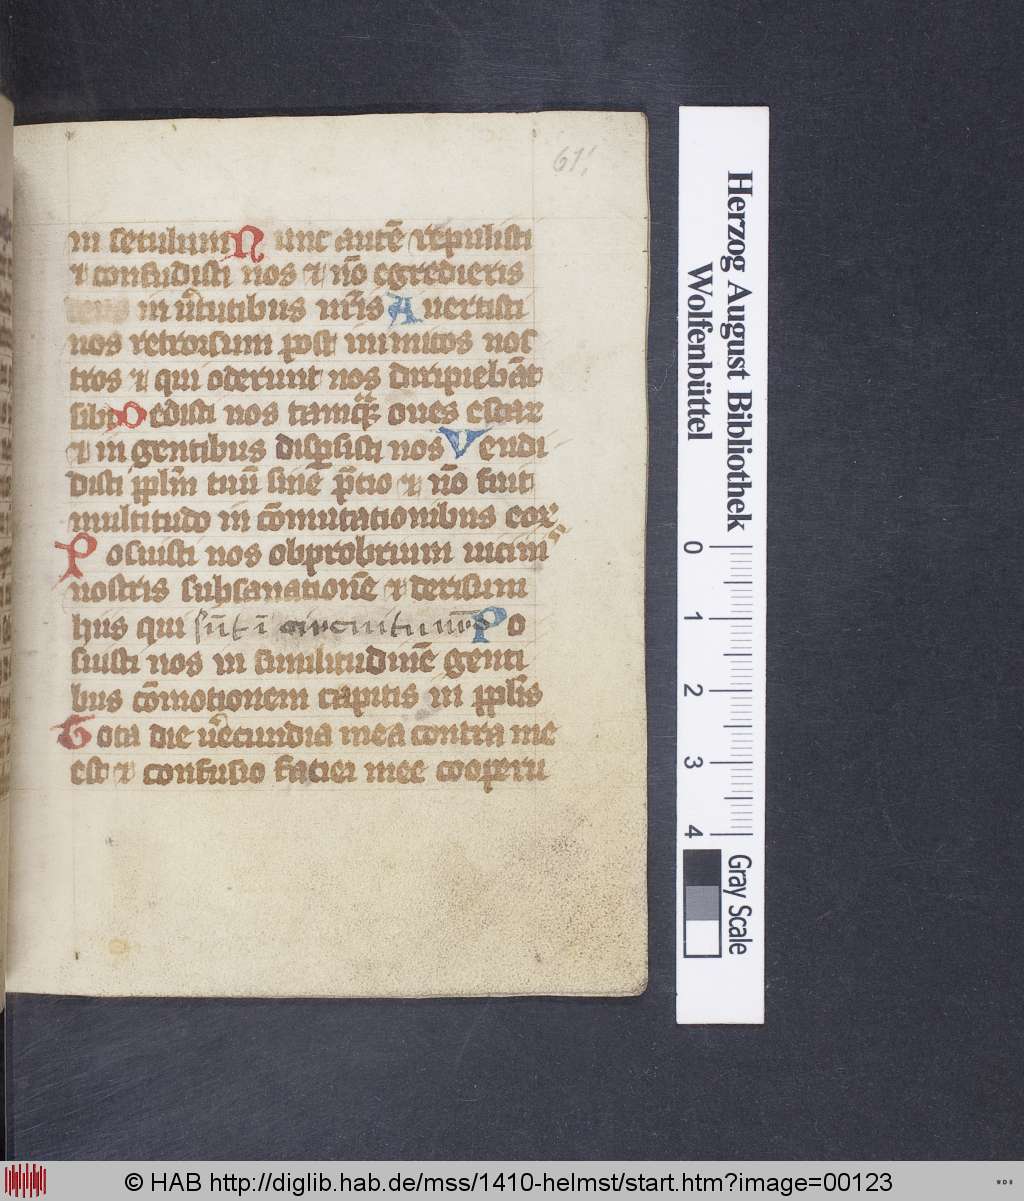 61
in seculum Nunc autē ⁊ repulisti
⁊ confudisti nos ⁊ nō egredieris
deus in v̓tutibus nr̄is Avertisti
nos retrorsum post inimicos nos
tros ⁊ qui oderunt nos diripiebāt
sibi Dedisti nos tamq̄ oues escar
⁊ in gentibus disꝑsisti nos Vendi
disti ppl̄m tuū sine p̄cio ⁊ nō fuit
multitudo in cōmutationibus eoꝝ
Posuisti nos obprobrium uicinis
nostris subsanationē ⁊ derisum
hiis qui sūt ī circuitu nr̄o Po
suisti nos in similitudinē genti
bus cōmotionem capitis in ppl̄is
Tota die v̓ecundia mea contra me
est ⁊ confusio faciei mee cooperu
Herzog August Bibliothek
Wolfenbüttel
0 1 2 3 4
Gray Scale
© HAB http://diglib.hab.de/mss/1410-helmst/start.htm?image=00123